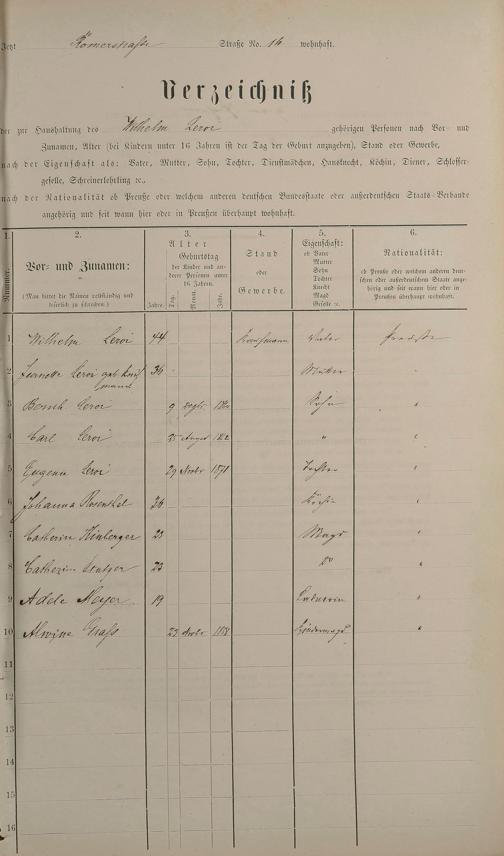 Jetzt Römerstraße Straße No. 16 wohnhaft.
Verzeichniß
der zur Haushaltung des Wilhelm Leroi gehörigen Personen nach Vor- und
Zunamen, Alter (bei Kindern unter 16 Jahren ist der Tag der Geburt anzugeben), Stand oder Gewerbe,
nach der Eigenschaft als: Vater, Mutter, Sohn, Tochter, Dienstmädchen, Hausknecht, Köchin, Diener, Schlosser-
geselle, Schreinerlehrling ꝛc.,
nach der Nationalität ob Preuße oder welchem anderen deutschen Bundesstaate oder außerdeutschen Staats-Verbande
angehörig und seit wann hier oder in Preußen überhaupt wohnhaft.
1. 2. 3. 4. 5. 6.
Nummer. Vor- und Zunamen: (Man bittet die Namen vollständig und leserlich zu schreiben.)
Alter Jahre. Geburtstag der Kinder und anderer Personen unter 16 Jahren. Tag. Monat. Jahr.
Stand oder Gewerbe.
Eigenschaft: ob Vater Mutter Sohn Tochter Knecht Magd Geselle ꝛc.
Nationalität: ob Preuße oder welchem anderen deutschen oder außerdeutschen Staate angehörig und seit wann hier oder in Preußen überhaupt wohnhaft.
1 Wilhelm Leroi 44 Kaufmann Vater Preuße
2 Leroi geb. 36 Mutter "
3 Leroi 9 Sohn "
4 Carl Leroi 25 August "
5 Eugenie Leroi 29 Novbr 1871 Tochter "
6 Johanna Rosenthal 26 Köchin "
7 Catherin Hinberger 23 Magd "
8 Catharina 23 do "
9 Adele Meyer 19 "
10 Alwine Graß 23 Novbr Kindermagd "
11
12
13
14
15
16